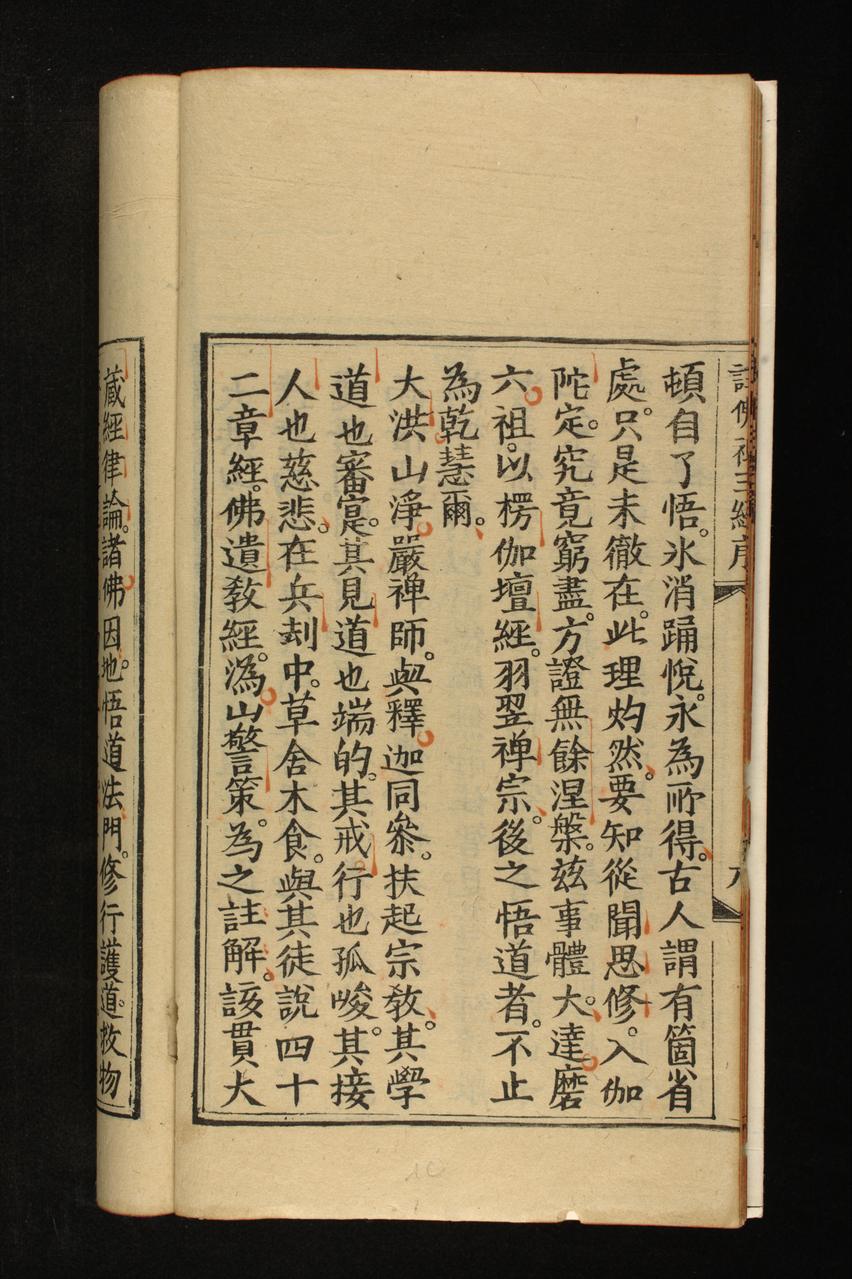 註佛祖三經序
頓自了悟。氷消踊悅。永為所得。古人謂有箇省
處。只是未徹在。此理灼然。要知從聞思修。入伽
陀定。究竟窮盡。方證無餘涅槃。玆事體大。達磨
六祖。以楞伽壇經。羽翌禅宗。後之悟道者。不止
為乾慧爾。
大洪山淨嚴禅師。與釋迦同叅。扶起宗教。其學
道也審寔。其見道也端的。其戒行也孤峻。其接
人也慈悲。在兵刦中。草舍木食。與其徒說四十
二章經。佛遺教經。溈山警策。為之註解。該貫大
藏經律論。諸佛因地。悟道法門。修行護道。救物